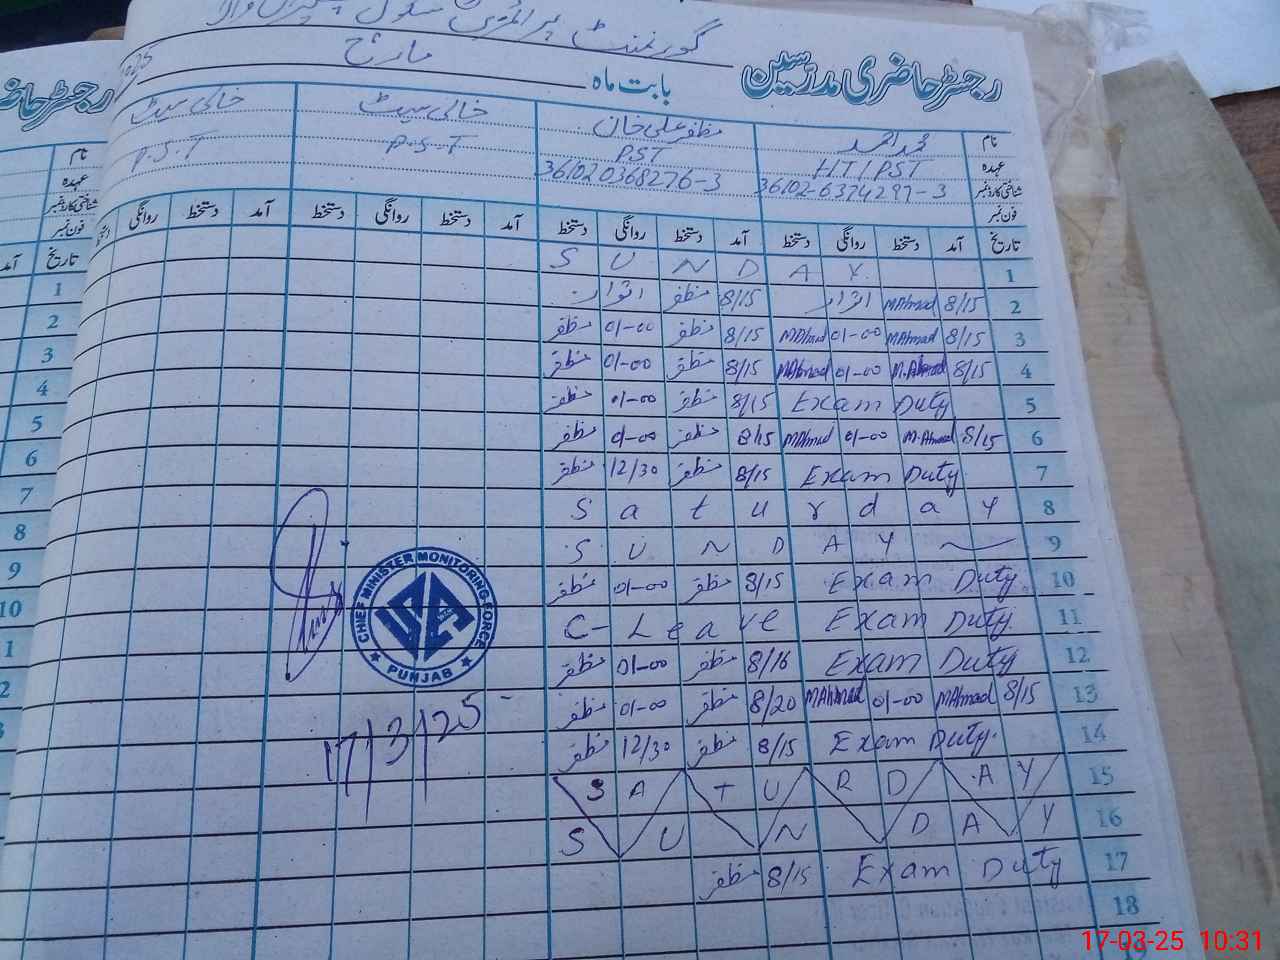 گورنمنٹ پرائمری سکول
رجسٹر حاضری مدرسین بابت ماہ مارچ 2025
نام محمد احمد مظفر علی خان خالی سیٹ خالی سیٹ
عہدہ HT/PST PST P.S.T P.S.T
شناختی کارڈ نمبر 36102-6374297-3 36102 0368276-3
فون نمبر
تاریخ آمد دستخط روانگی دستخط آمد دستخط روانگی دستخط آمد دستخط روانگی دستخط آمد دستخط روانگی دستخط
1 S U N D A Y
2 8/15 MAhmad اتوار 8/15 مظفر اتوار
3 8/15 MAhmad 01-00 MAhmad 8/15 مظفر 01-00 مظفر
4 8/15 M.Ahmad 01-00 MAhmad 8/15 مظفر 01-00 مظفر
5 Exam Duty 8/15 مظفر 01-00 مظفر
6 8/15 M.Ahmad 01-00 MAhmad 8/15 مظفر 01-00 مظفر
7 Exam Duty 8/15 مظفر 12/30 مظفر
8 S a t u r d a y
9 S U N D A Y
10 Exam Duty 8/15 مظفر 01-00 مظفر
11 C-Leave Exam Duty
12 Exam Duty 8/16 مظفر 01-00 مظفر
13 8/15 MAhmad 01-00 MAhmad 8/20 مظفر 01-00 مظفر
14 Exam Duty 8/15 مظفر 12/30 مظفر
15 S A T U R D A Y
16 S U N D A Y
17 Exam Duty 8/15 مظفر
18
19
CHIEF MINISTER MONITORING FORCE
PUNJAB
17/3/25
رجسٹر حاضری
نام
عہدہ
شناختی کارڈ نمبر
فون نمبر
تاریخ آمد
1
2
3
4
5
6
7
8
9
10
17-03-25 10:31